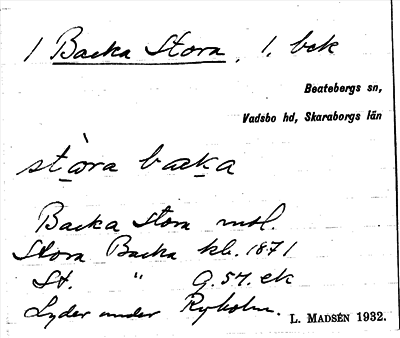 1 Backa Stora, 1. bek
Beatebergs sn,
Vadsbo hd, Skaraborgs län
stòra backa
Backa Stora msl.
Stora Backa kb. 1871
St. " G. 57. ek
Lyder under Ryholm.
L. MADSÉN 1932.